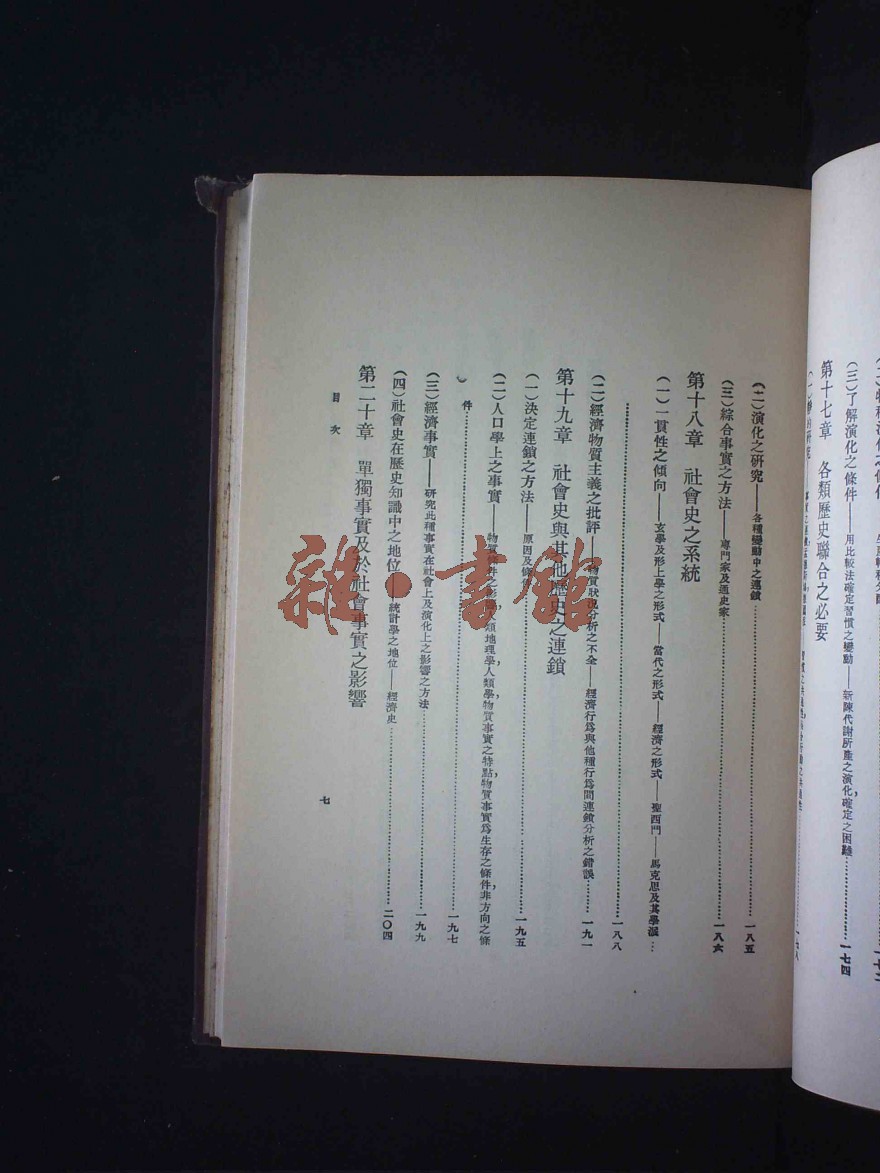 (三)了解演化之條件——用比較法確定習慣之變動——新陳代謝所產之演化,確定之困難……一七四
第十七章 各類歷史聯合之必要
(二)演化之研究——各種變動中之連鎖……一八五
(三)綜合事實之方法——專門家及通史家……一八六
第十八章 社會史之系統
(一)一貫性之傾向——玄學及形上學之形式——當代之形式——經濟之形式——聖西門——馬克思及其學派…
……一八八
(二)經濟物質主義之批評——物質狀況分析之不全——經濟行爲與他種行爲間連鎖分析之錯誤……一九一
第十九章 社會史與其他歷史之連鎖
(一)決定連鎖之方法——原因及條件……一九五
(二)人口學上之事實——物質條件之影響,人類地理學,人類學,物質事實之特點,物質事實爲生存之條件,非方向之條
件……一九七
(三)經濟事實——研究此種事實在社會上及演化上之影響之方法……一九九
(四)社會史在歷史知識中之地位——統計學之地位——經濟史……二〇四
第二十章 單獨事實及於社會事實之影響
目次
七
雜·書館